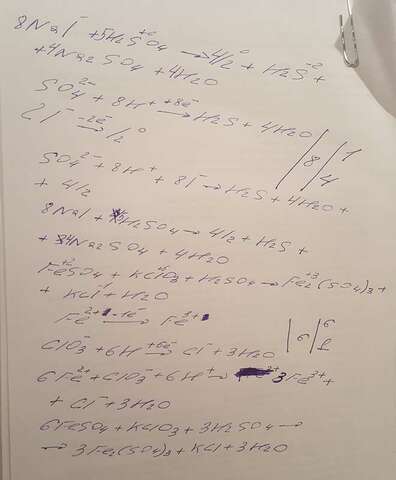 8NaI⁻ + 5H₂S⁺⁶O₄ → 4I₂⁰ + H₂S⁻² +
+ 4Na₂SO₄ + 4H₂O
SO₄²⁻ + 8H⁺ +8e⁻→ H₂S + 4H₂O | | 1
2I⁻ -2e⁻→ I₂⁰ | 8 | 4
SO₄²⁻ + 8H⁺ + 8I⁻ → H₂S + 4H₂O +
+ 4I₂
8NaI + 5H₂SO₄ → 4I₂ + H₂S +
+ 4Na₂SO₄ + 4H₂O
Fe⁺²SO₄ + KClO₃ + H₂SO₄ → Fe₂⁺³(SO₄)₃ +
+ KCl⁻¹ + H₂O
Fe²⁺ -1e⁻→ Fe³⁺ | | 6
ClO₃⁻ + 6H⁺ +6e⁻→ Cl⁻ + 3H₂O | 6 | 1
6Fe²⁺ + ClO₃⁻ + 6H⁺ → 3Fe³⁺ +
+ Cl⁻ + 3H₂O
6FeSO₄ + KClO₃ + 3H₂SO₄ →
→ 3Fe₂(SO₄)₃ + KCl + 3H₂O